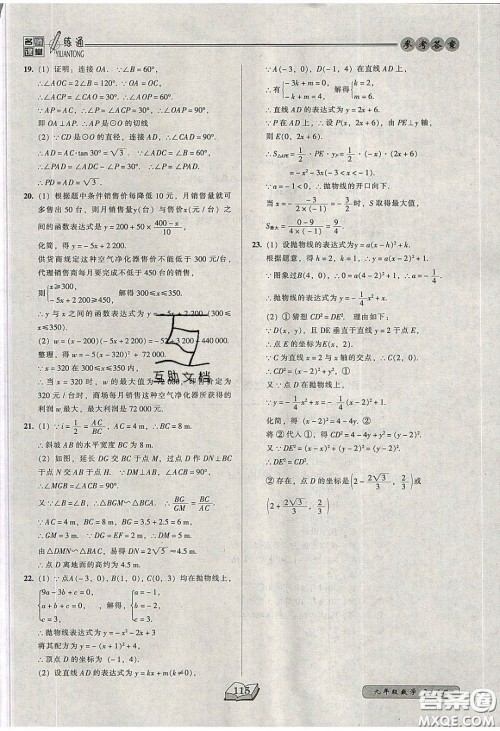 名师课堂 一练通 YILIANTONG
参考答案
19. (1) 证明：连接 OA. ∵∠B = 60°,
∴∠AOC = 2∠B = 120°. ∵OA = OC,
∴∠OAC = ∠OCA = 30°. ∵AP = AC,
∴∠AOP = 60°, ∴∠OAP = 90°,
即 OA⊥AP. ∴AP 是⊙O 的切线
(2) ∵CD 是⊙O 的直径，连接 AD.
∴∠CAD = 90°.
∴AD = AC·tan 30° = √3.
∵∠ADC = ∠B = 60°,
∴∠PAD = ∠ADC - ∠P = 30°.
∴∠P = ∠PAD,
∴PD = AD = √3.
20. (1) 根据题中条件销售价每降低 10 元，月销售量就可
多售出 50 台，则月销售量 y(台)与售价 x(元/台)之
间的函数表达式为 y = 200 + 50 × (400 - x)/10,
化简，得 y = -5x + 2 200.
供货商规定这种空气净化器售价不能低于 300 元/台,
代理销售商每月要完成不低于 450 台的销售,
则{x≥300, -5x + 2 200≥450, 解得 300≤x≤350.
∴y 与 x 之间的函数表达式为 y = -5x + 2 200(300
≤x≤350)
(2) w = (x - 200)(-5x + 2 200) = -5x² + 3 200x - 440 000.
整理，得 w = -5(x - 320)² + 72 000.
∵x = 320 在 300≤x≤350 内,
∴当 x = 320 时，w 的最大值为 72 000，即售价定为 320
元/台时，商场每月销售这种空气净化器所获得的
利润 w 最大，最大利润是 72 000 元.
21. (1) ∵i = 1/2 = AC/BC, AC = 4 m, ∴BC = 8 m.
∴斜坡 AB 的水平宽度 BC 为 8 m
(2) 如图，延长 DG 交 BC 于点 M，过点 D 作 DN⊥BC 于
点 N 交 AB 于点 H. ∵∠DGH = ∠ACB = 90°,
∴∠MGB = ∠ACB = 90°.
又∵∠B = ∠B, ∴△BGM∽△BCA, ∴BG/GM = BC/AC
∵AC = 4 m, BC = 8 m,
由△DMN∽△DHG, 易得 DN = 2√5 ≈ 4.5 m.
∴点 D 离地面的高约为 4.5 m.
22. (1) ∵点 A(-3, 0), B(1, 0), C(0, 3) 均在抛物线上,
{9a - 3b + c = 0, a + b + c = 0, c = 3, 解得{a = -1, b = -2, c = 3.
∴抛物线表达式为 y = -x² - 2x + 3
将其配方为 y = -(x + 1)² + 4.
∴顶点 D 的坐标为 (-1, 4).
(2) 设直线 AD 的表达式为 y = kx + m(k≠0),
∵A(-3, 0), D(-1, 4) 在直线 AD 上,
有{-3k + m = 0, -k + m = 4, 解得{k = 2, m = 6.
∴直线 AD 的表达式为 y = 2x + 6.
∵P 在 AD 上，∴设 P(x, 2x + 6),
则 E(0, 2x + 6).
∴S△APE = 1/2·PE·yP = 1/2·(-x)·(2x + 6)
= -x² - 3x(-3 < x < -1).
∵a = -1 < 0, ∴抛物线的开口向下.
∴当 x = -(-3)/(2×(-1)) = -3/2 时，S 取得最大值.
S最大 = (0 - 9)/(4×(-1)) = 9/4
23. (1) 设抛物线的表达式为 y = a(x - h)² + k.
根据题意，得 h = 2, k = 1. ∴y = a(x - 2)² + 1.
∵图象过 B(4, 0), ∴0 = a(4 - 2)² + 1. ∴a = -1/4.
∴抛物线的表达式为 y = -1/4x² + x.
(2) ① 猜想：DE² = CE². 理由如下:
∵点 D(x, y), 且 DE 垂直于直线 y = 2 于点 E,
∴点 E 的坐标为 E(x, 2).
∵C 为直线 x = 2 与 x 轴的交点，∴C(2, 0).
又∵点 D 在抛物线上,
∴y = -1/4x² + x = -1/4(x - 2)² + 1.
化简，得 (x - 2)² = 4 - 4y ②.
将②代入①, 得 CD² = 4 - 4y + y² = (y - 2)².
又∵DE² = (2 - y)² = (y - 2)².
∴DE² = CD².
② 存在，点 D 的坐标是 (2 - 2√3/3, 2/3) 或
(2 + 2√3/3, 2/3).
互助文档
115
九年级数学
答案圈
MXQE.COM